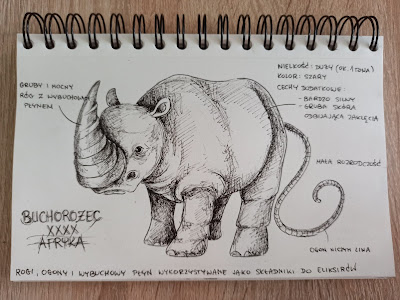 WIELKOŚĆ: DUŻY (OK. 1 TONA)
KOLOR: SZARY
CECHY DODATKOWE:
- BARDZO SILNY
- GRUBA SKÓRA
ODBIJAJĄCA ZAKLĘCIA
GRUBY I MOCNY
RÓG Z WYBUCHOWYM
PŁYNEM
MAŁA ROZRODCZOŚĆ
BUCHOROŻEC
XXXX
AFRYKA
OGON NICZYM LINA
ROGI, OGONY I WYBUCHOWY PŁYN WYKORZYSTYWANE JAKO SKŁADNIKI DO ELIKSIRÓW